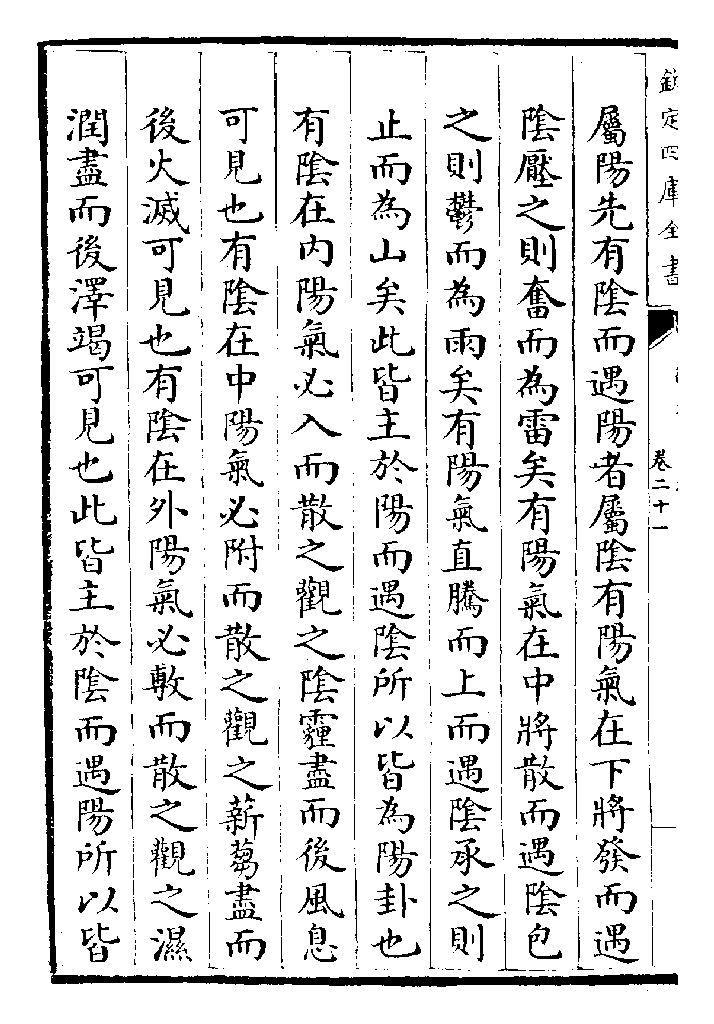 欽定四庫全書
卷二十一
屬陽先有陰而遇陽者屬陰有陽氣在下將發而遇
陰壓之則奮而為雷矣有陽氣在中將散而遇陰包
之則鬱而為雨矣有陽氣直騰而上而遇陰承之則
止而為山矣此皆主於陽而遇陰所以皆為陽卦也
有陰在内陽氣必入而散之觀之陰霾盡而後風息
可見也有陰在中陽氣必附而散之觀之薪蒭盡而
後火滅可見也有陰在外陽氣必敷而散之觀之濕
潤盡而後澤竭可見也此皆主於陰而遇陽所以皆